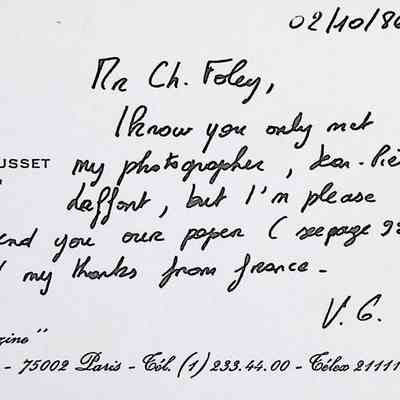 02/10/86
Mr Ch. Foley,
I know you only met
USSET my photographer, Jean-Piè
Laffont, but I'm please
end you our paper (see page 92
my thanks from france -
V. G.
zine"
- 75002 Paris - Tél. (1) 233.44.00 - Télex 21111